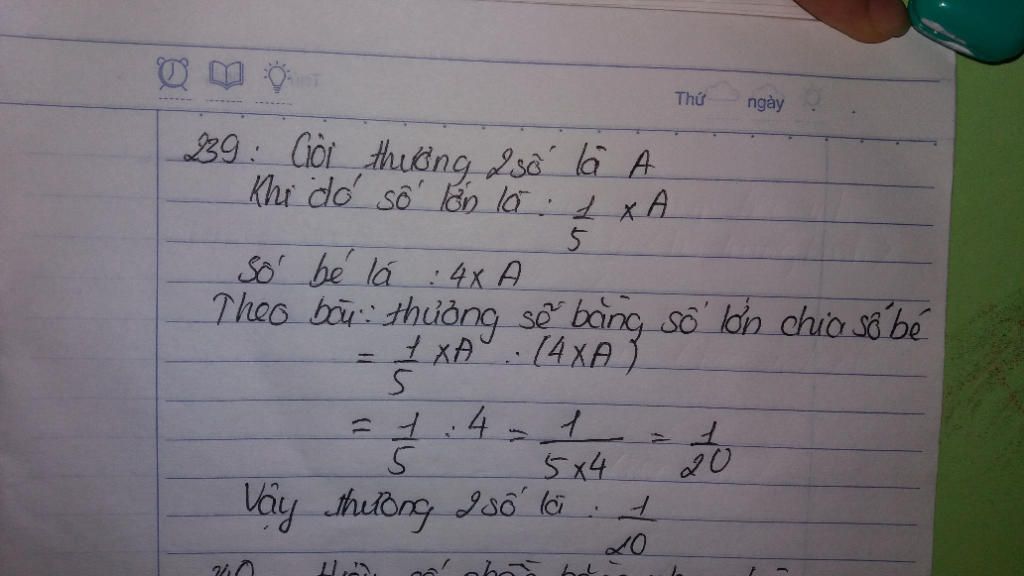 Thứ ngày
239: Gọi thương 2 số là A
Khi đó số lớn là: 1/5 x A
Số bé là: 4 x A
Theo bài: thương sẽ bằng số lớn chia số bé
= 1/5 x A : (4 x A)
= 1/5 : 4 = 1/(5 x 4) = 1/20
Vậy thương 2 số là: 1/20